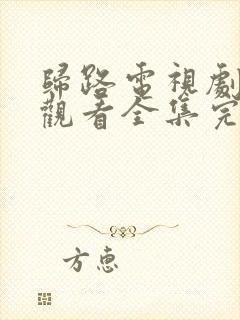 歸路電視劇
觀看全集完
方惠